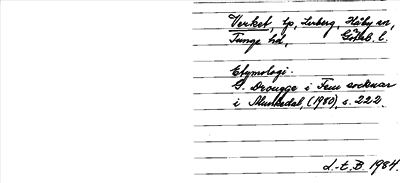 Verket, tp, Lerberg, Håby sn,
Tunge hd, Göteb. l.
Etymologi.
G. Drougge i Fem socknar
i Munkedal, (1980), s. 222.
L.-E, B 1984.